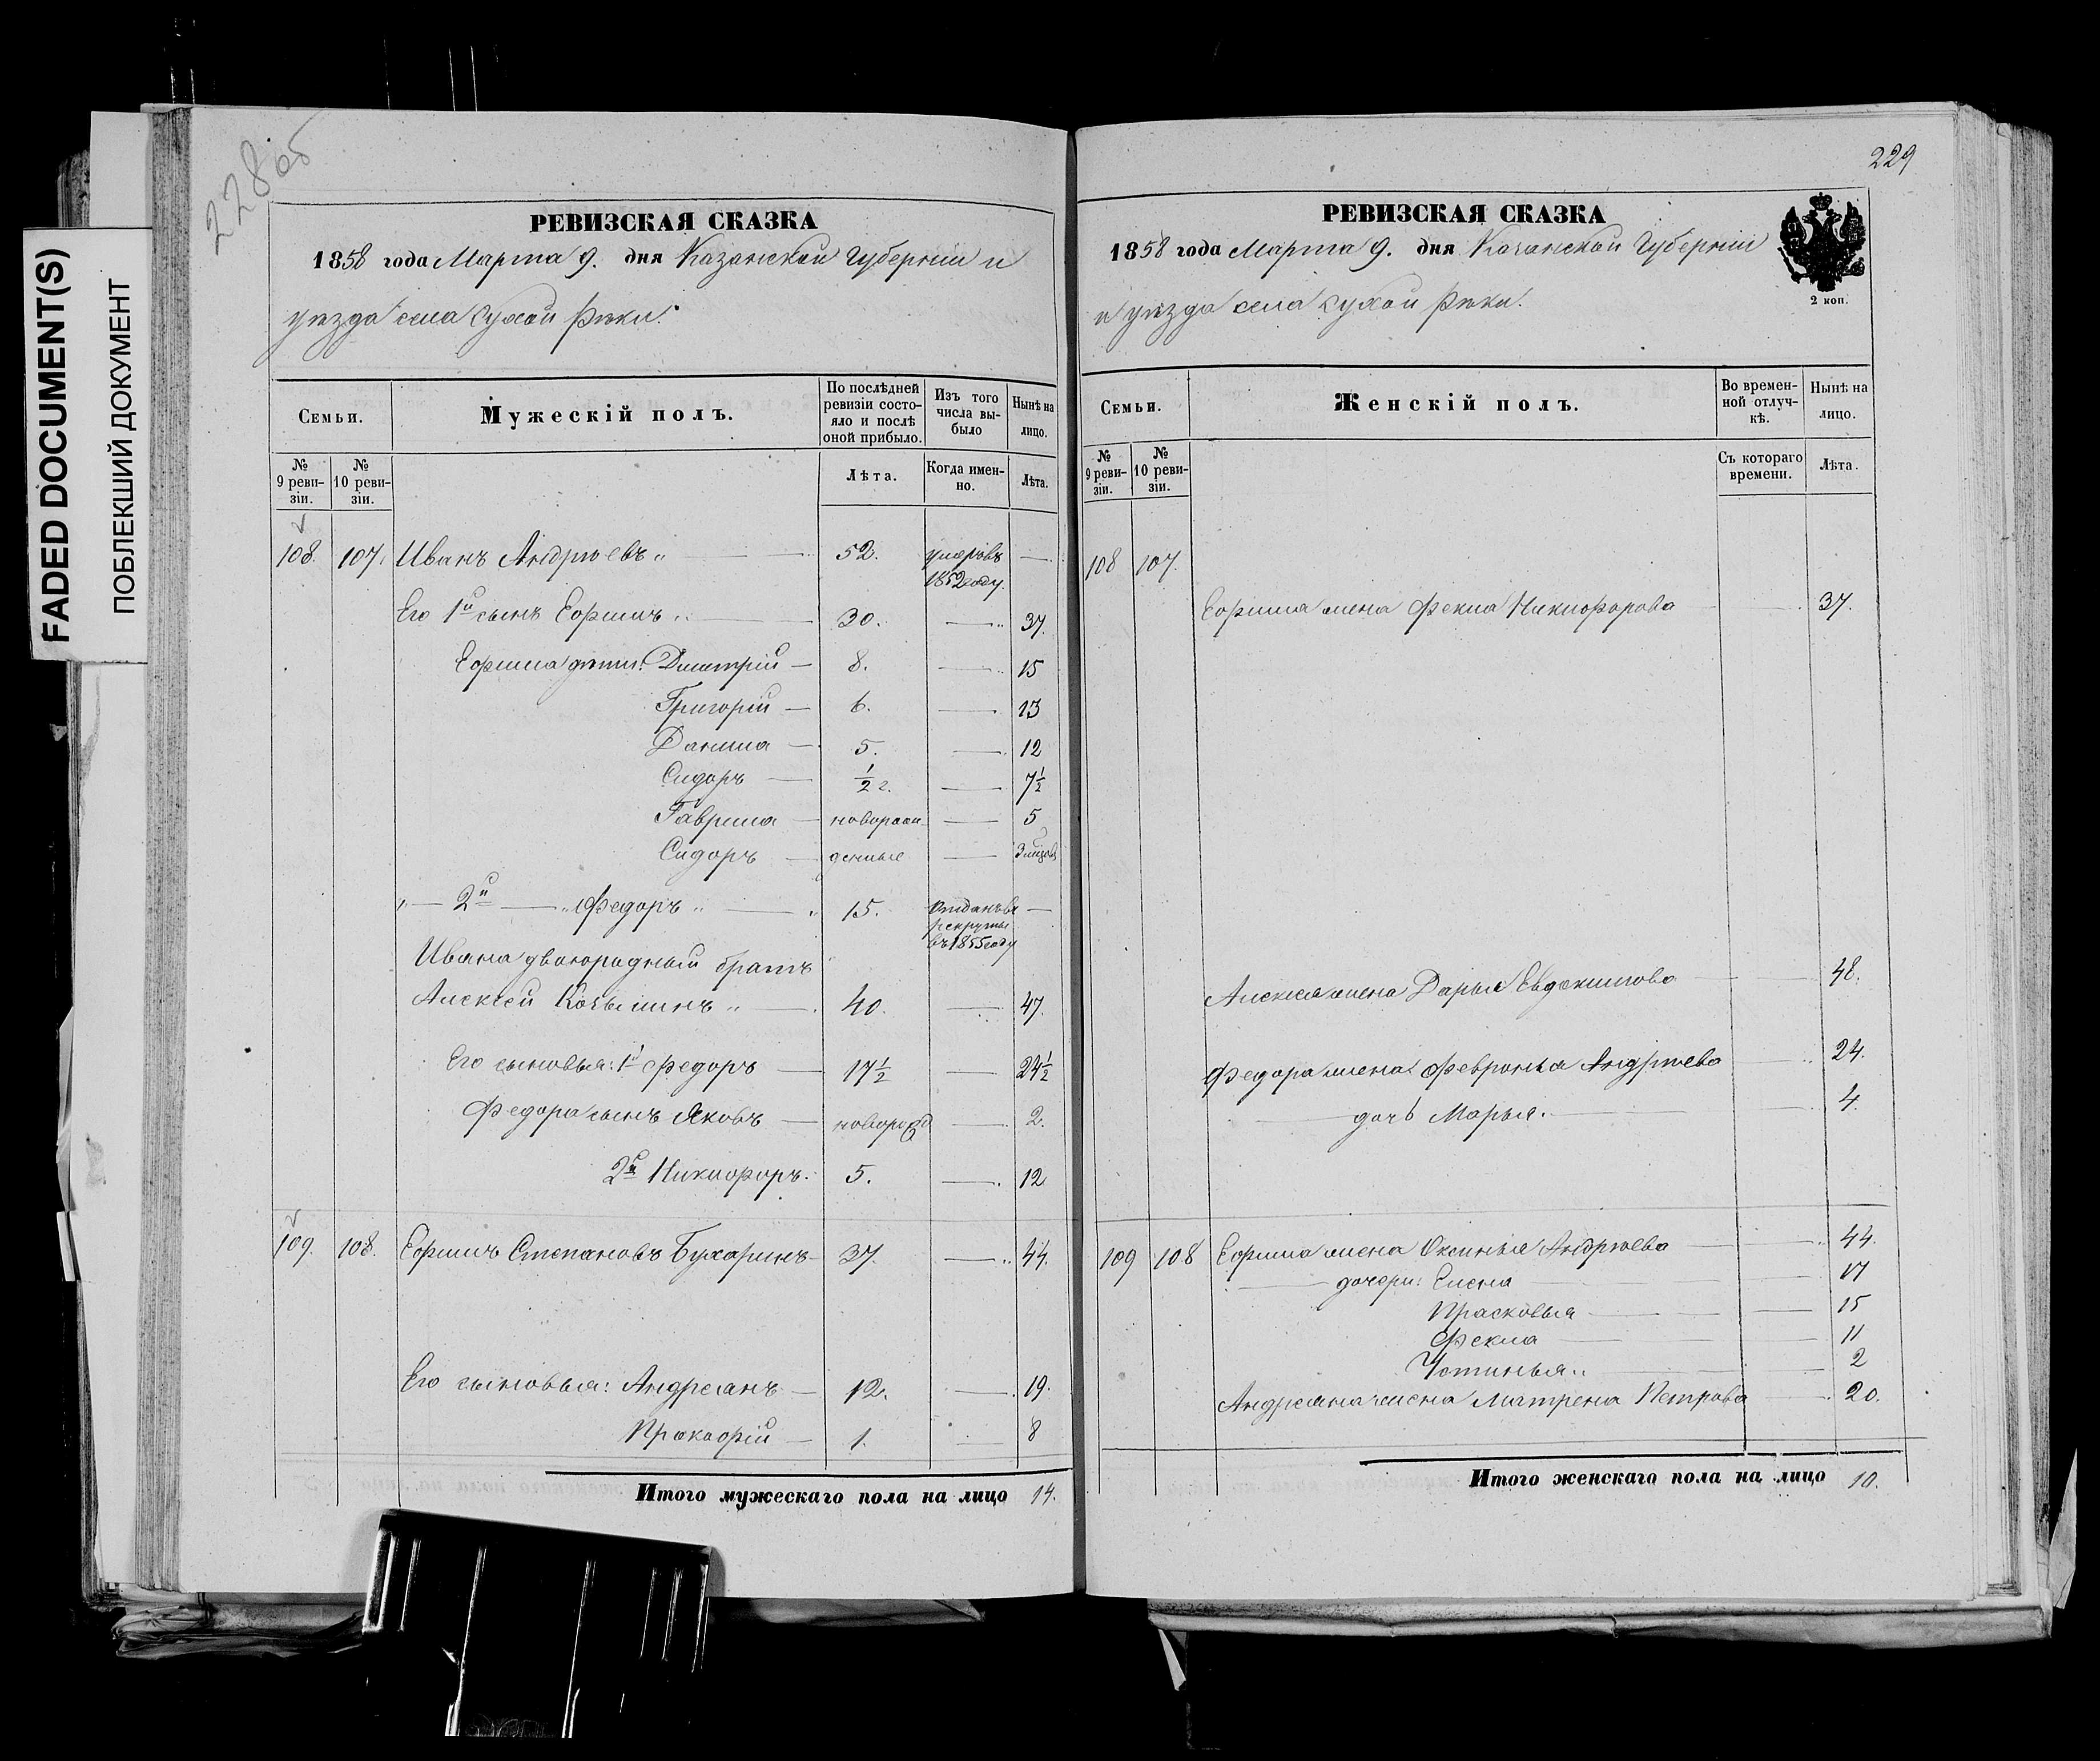 FADED DOCUMENT(S)
ПОБЛЕКШИЙ ДОКУМЕНТ
228 об
РЕВИЗСКАЯ СКАЗКА
1858 года Марта 9. дня Казанской Губерніи и
уѣзда села Сухой Рѣки.
Семьи.
Мужескій полъ.
По послѣдней ревизіи состояло и послѣ оной прибыло.
Изъ того числа выбыло
Нынѣ на лицо.
№ 9 ревизіи.
№ 10 ревизіи.
Лѣта.
Когда именно.
Лѣта.
108. 107. Иванъ Андрѣевъ 52. умеръ въ 1852 году —
Его 1й сынъ Ефимъ 30. — 37.
Ефима дѣти: Дмитрій — 8. — 15
Григорій — 6. — 13
Данила — 5. — 12
Сидоръ — ½ г. — 7½
Гаврила — новорож — 5
Сидоръ — денные — 3 мѣсяц
„— 2й — „ Федоръ „ — 15. Отданъ въ рекруты въ 1855 году —
Ивана двоюродный братъ
Алексѣй Козьминъ „ — 40. — 47.
Его сыновья: 1й Федоръ — 17½ — 24½
Федора сынъ Яковъ — новорожд — 2.
2й Никифоръ. 5. — 12
109. 108. Ефимъ Степановъ Бухаринъ — 37. — 44.
Его сыновья: Андреянъ — 12. — 19.
Прокофій — 1. — 8
Итого мужескаго пола на лицо 14.
229
РЕВИЗСКАЯ СКАЗКА
1858 года Марта 9. дня Казанской Губерніи
и уѣзда села Сухой Рѣки.
2 коп.
Семьи.
Женскій полъ.
Во временной отлучкѣ.
Нынѣ на лицо.
№ 9 ревизіи.
№ 10 ревизіи.
Съ котораго времени.
Лѣта.
108 107.
Ефима жена Фекла Никифорова — 37.
Алексѣя жена Дарья Евдокимова — 48.
Федора жена Февронья Андрѣева — 24.
— дочь Марья. — 4.
109 108 Ефима жена Оксинья Андрѣева — 44.
— дочери: Елена — 17
Прасковья — 15
Фекла — 11
Устинья „ — 2
Андреяна жена Матрена Петрова — 20.
Итого женскаго пола на лицо 10.